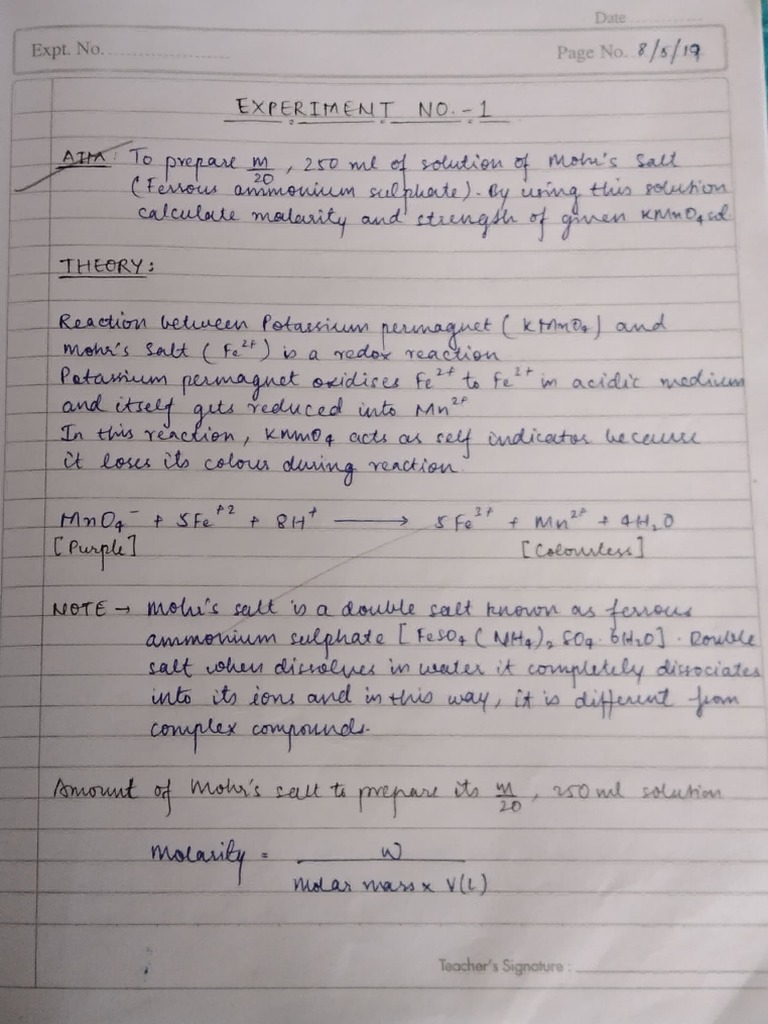 Date
Expt. No.
Page No. 8/5/19
EXPERIMENT NO.-1
AIM: To prepare M/20, 250 ml of solution of Mohr's Salt
(Ferrous ammonium sulphate). By using this solution
calculate molarity and strength of given KMnO4 sol.
THEORY:
Reaction between Potassium permagnet (KMnO4) and
Mohr's Salt (Fe2+) is a redox reaction
Potassium permagnet oxidises Fe2+ to Fe2+ in acidic medium
and itself gets reduced into Mn2+
In this reaction, KnmO4 acts as self indicator because
it loses its colour during reaction.
MnO4- + 5Fe+2 + 8H+ ⟶ 5Fe3+ + Mn2+ + 4H2O
[Purple] [Colourless]
NOTE → Mohr's salt is a double salt known as ferrous
ammonium sulphate [FeSO4(NH4)2SO4.6H2O]. Double
salt when dissolves in water it completely dissociates
into its ions and in this way, it is different from
complex compounds.
Amount of Mohr's salt to prepare its M/20, 250 ml solution
Molarity = W
Molar mass x V(L)
Teacher's Signature :